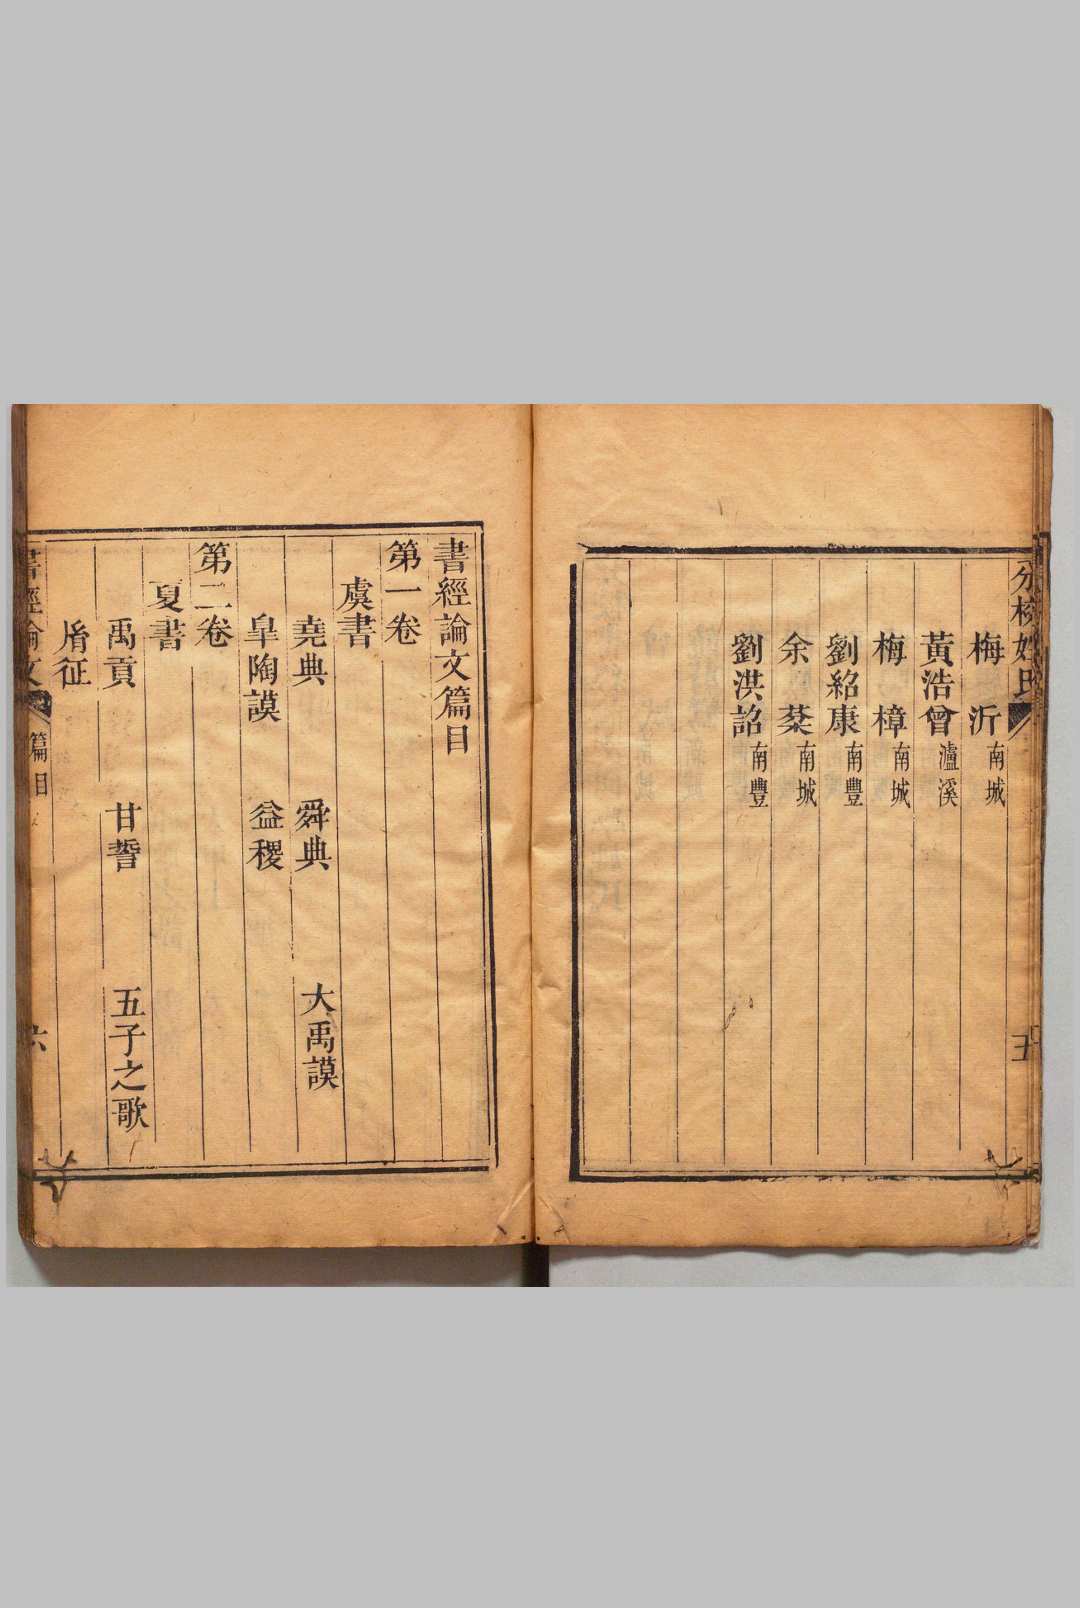 分校姓氏
五
梅沂 南城
黃浩曾 瀘溪
梅樟 南城
劉紹康 南豐
余棻 南城
劉洪詔 南豐
書經論文篇目
第一卷
虞書
堯典 舜典 大禹謨
臯陶謨 益稷
第二卷
夏書
禹貢 甘誓 五子之歌
胤征
書經論文 篇目
六